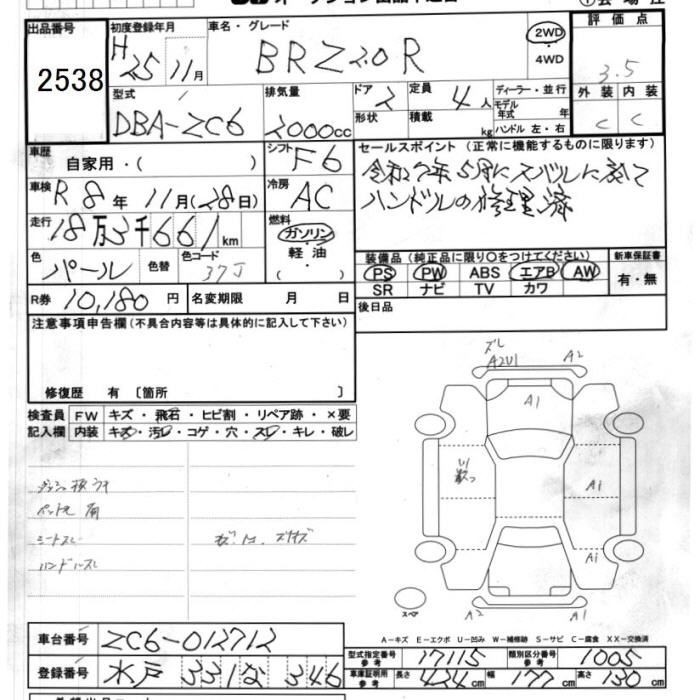 出品番号
2538
初度登録年月
H25 11月
車名・グレード
BRZ 2.0R
2WD
・
4WD
評価点
3.5
外装 内装
C C
型式
DBA-ZC6
排気量
2000cc
ドア
2
形状
定員
4人
積載 kg
ディーラー・並行
モデル年式 年
ハンドル 左・右
車歴
自家用・( )
シフト
F6
セールスポイント (正常に機能するものに限ります)
令和7年5月にスバルにて
ハンドルの修理済
車検
R8年11月(28日)
冷房
AC
走行
18万3千661km
燃料
ガソリン
軽・油
( )
色
パール
色替
色コード
37J
装備品 (純正品に限り○をつけてください)
PS PW ABS エアB AW
SR ナビ TV カワ
新車保証書
有・無
R券 10,180円
名変期限 月 日
後日品
注意事項申告欄 (不具合内容等は具体的に記入して下さい)
修復歴 有 〔箇所 〕
検査員
記入欄
FW キズ・飛石・ヒビ割・リペア跡・×要
内装 キズ・汚レ・コゲ・穴・スレ・キレ・破レ
ペット毛 有
シートスレ
ハンドルスレ
ズレ
A2U1 A2
A1
U1
A1
A1
A2 A1
スペア
A-キズ E-エクボ U-凹み W-補修跡 S-サビ C-腐食 XX-交換済
車台番号 ZC6-012712
登録番号 水戸 331 な 346
型式指定番号 参考 17115
類別区分番号 参考 1005
車庫証明用 参考 長さ 424cm 幅 177cm 高さ 130cm